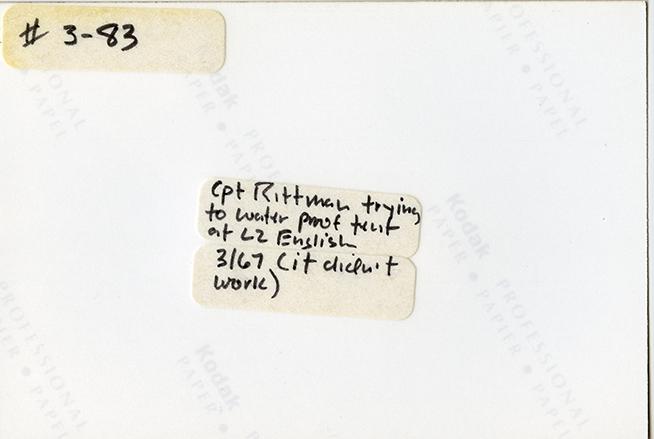 # 3-83
Cpt Rittman trying
to water proof tent
at LZ English
3/67 (it didn't
work)
Kodak
PROFESSIONAL
PAPIER • PAPEL